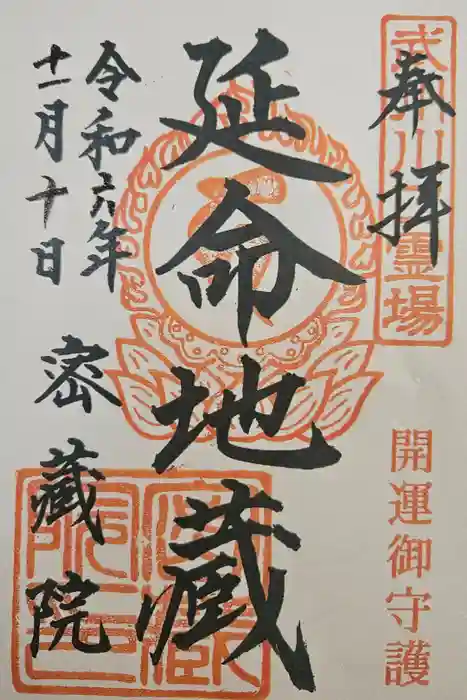 奉拝
霊場
開運御守護
延命地蔵
令和六年
十一月十日
密蔵院